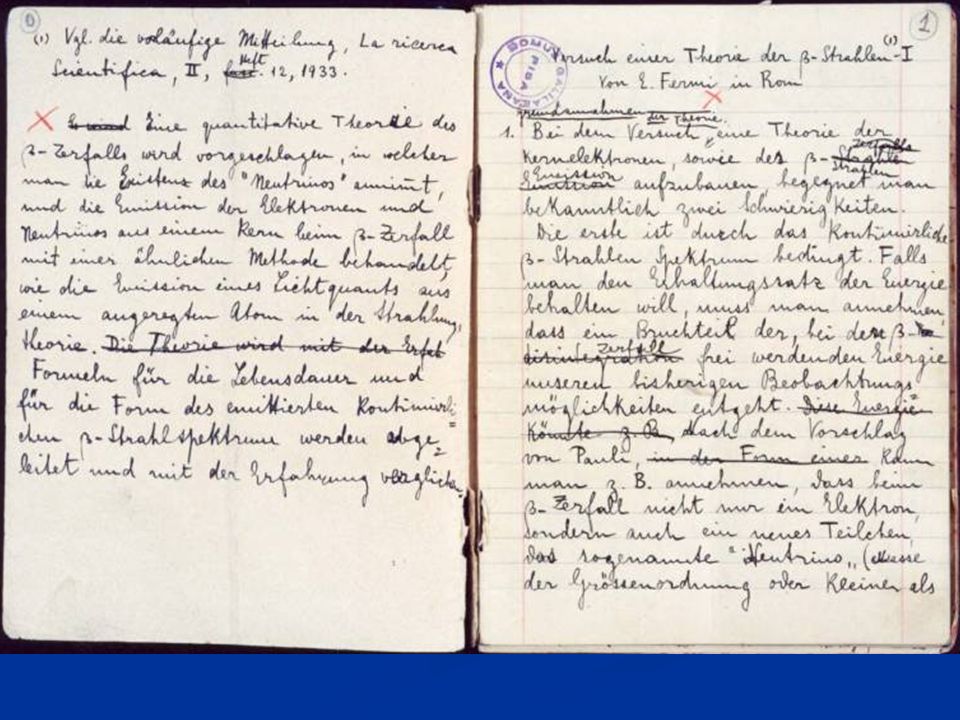 0
(1) Vgl. die vorläufige Mitteilung, La ricerca
Scientifica, II, Heft 12, 1933.
Eine quantitative Theorie des
β-Zerfalls wird vorgeschlagen, in welcher
man die Existenz des "Neutrinos" annimmt,
und die Emission der Elektronen und
Neutrinos aus einem Kern beim β-Zerfall
mit einer ähnlichen Methode behandelt,
wie die Emission eines Lichtquants aus
einem angeregten Atom in der Strahlung,
theorie. Die Theorie wird mit der Erfah
Formeln für die Lebensdauer und
für die Form des emittierten Kontinuierli
chen β-Strahlspektrum werden abge=
leitet und mit der Erfahrung verglichen.
1
DOMUS GALILAEANA
PISA
Versuch einer Theorie der β-Strahlen-I (1)
Von E. Fermi in Rom
Grundannahmen der Theorie.
1. Bei dem Versuch eine Theorie der
Zerfalls
Kernelektronen, sowie des β-Strahlen
Emission Strahlen
Emission aufzubauen, begegnet man
bekanntlich zwei Schwierigkeiten.
Die erste ist durch das Kontinuierliche
β-Strahlen Spektrum bedingt. Falls
man den Erhaltungssatz der Energie
behalten will, muss man annehmen,
dass ein Bruchteil der, bei dem β-
Zerfall
disintegration frei werdenden Energie
unseren bisherigen Beobachtungs
möglichkeiten entgeht. Diese Energie
Könnte z. B. Nach dem Vorschlag
von Pauli, in der Form einer Kann
man z. B. annehmen, dass beim
β-Zerfall nicht nur ein Elektron,
sondern auch ein neues Teilchen,
das sogenannte "Neutrino„ (Masse
der Grössenordnung oder Kleiner als